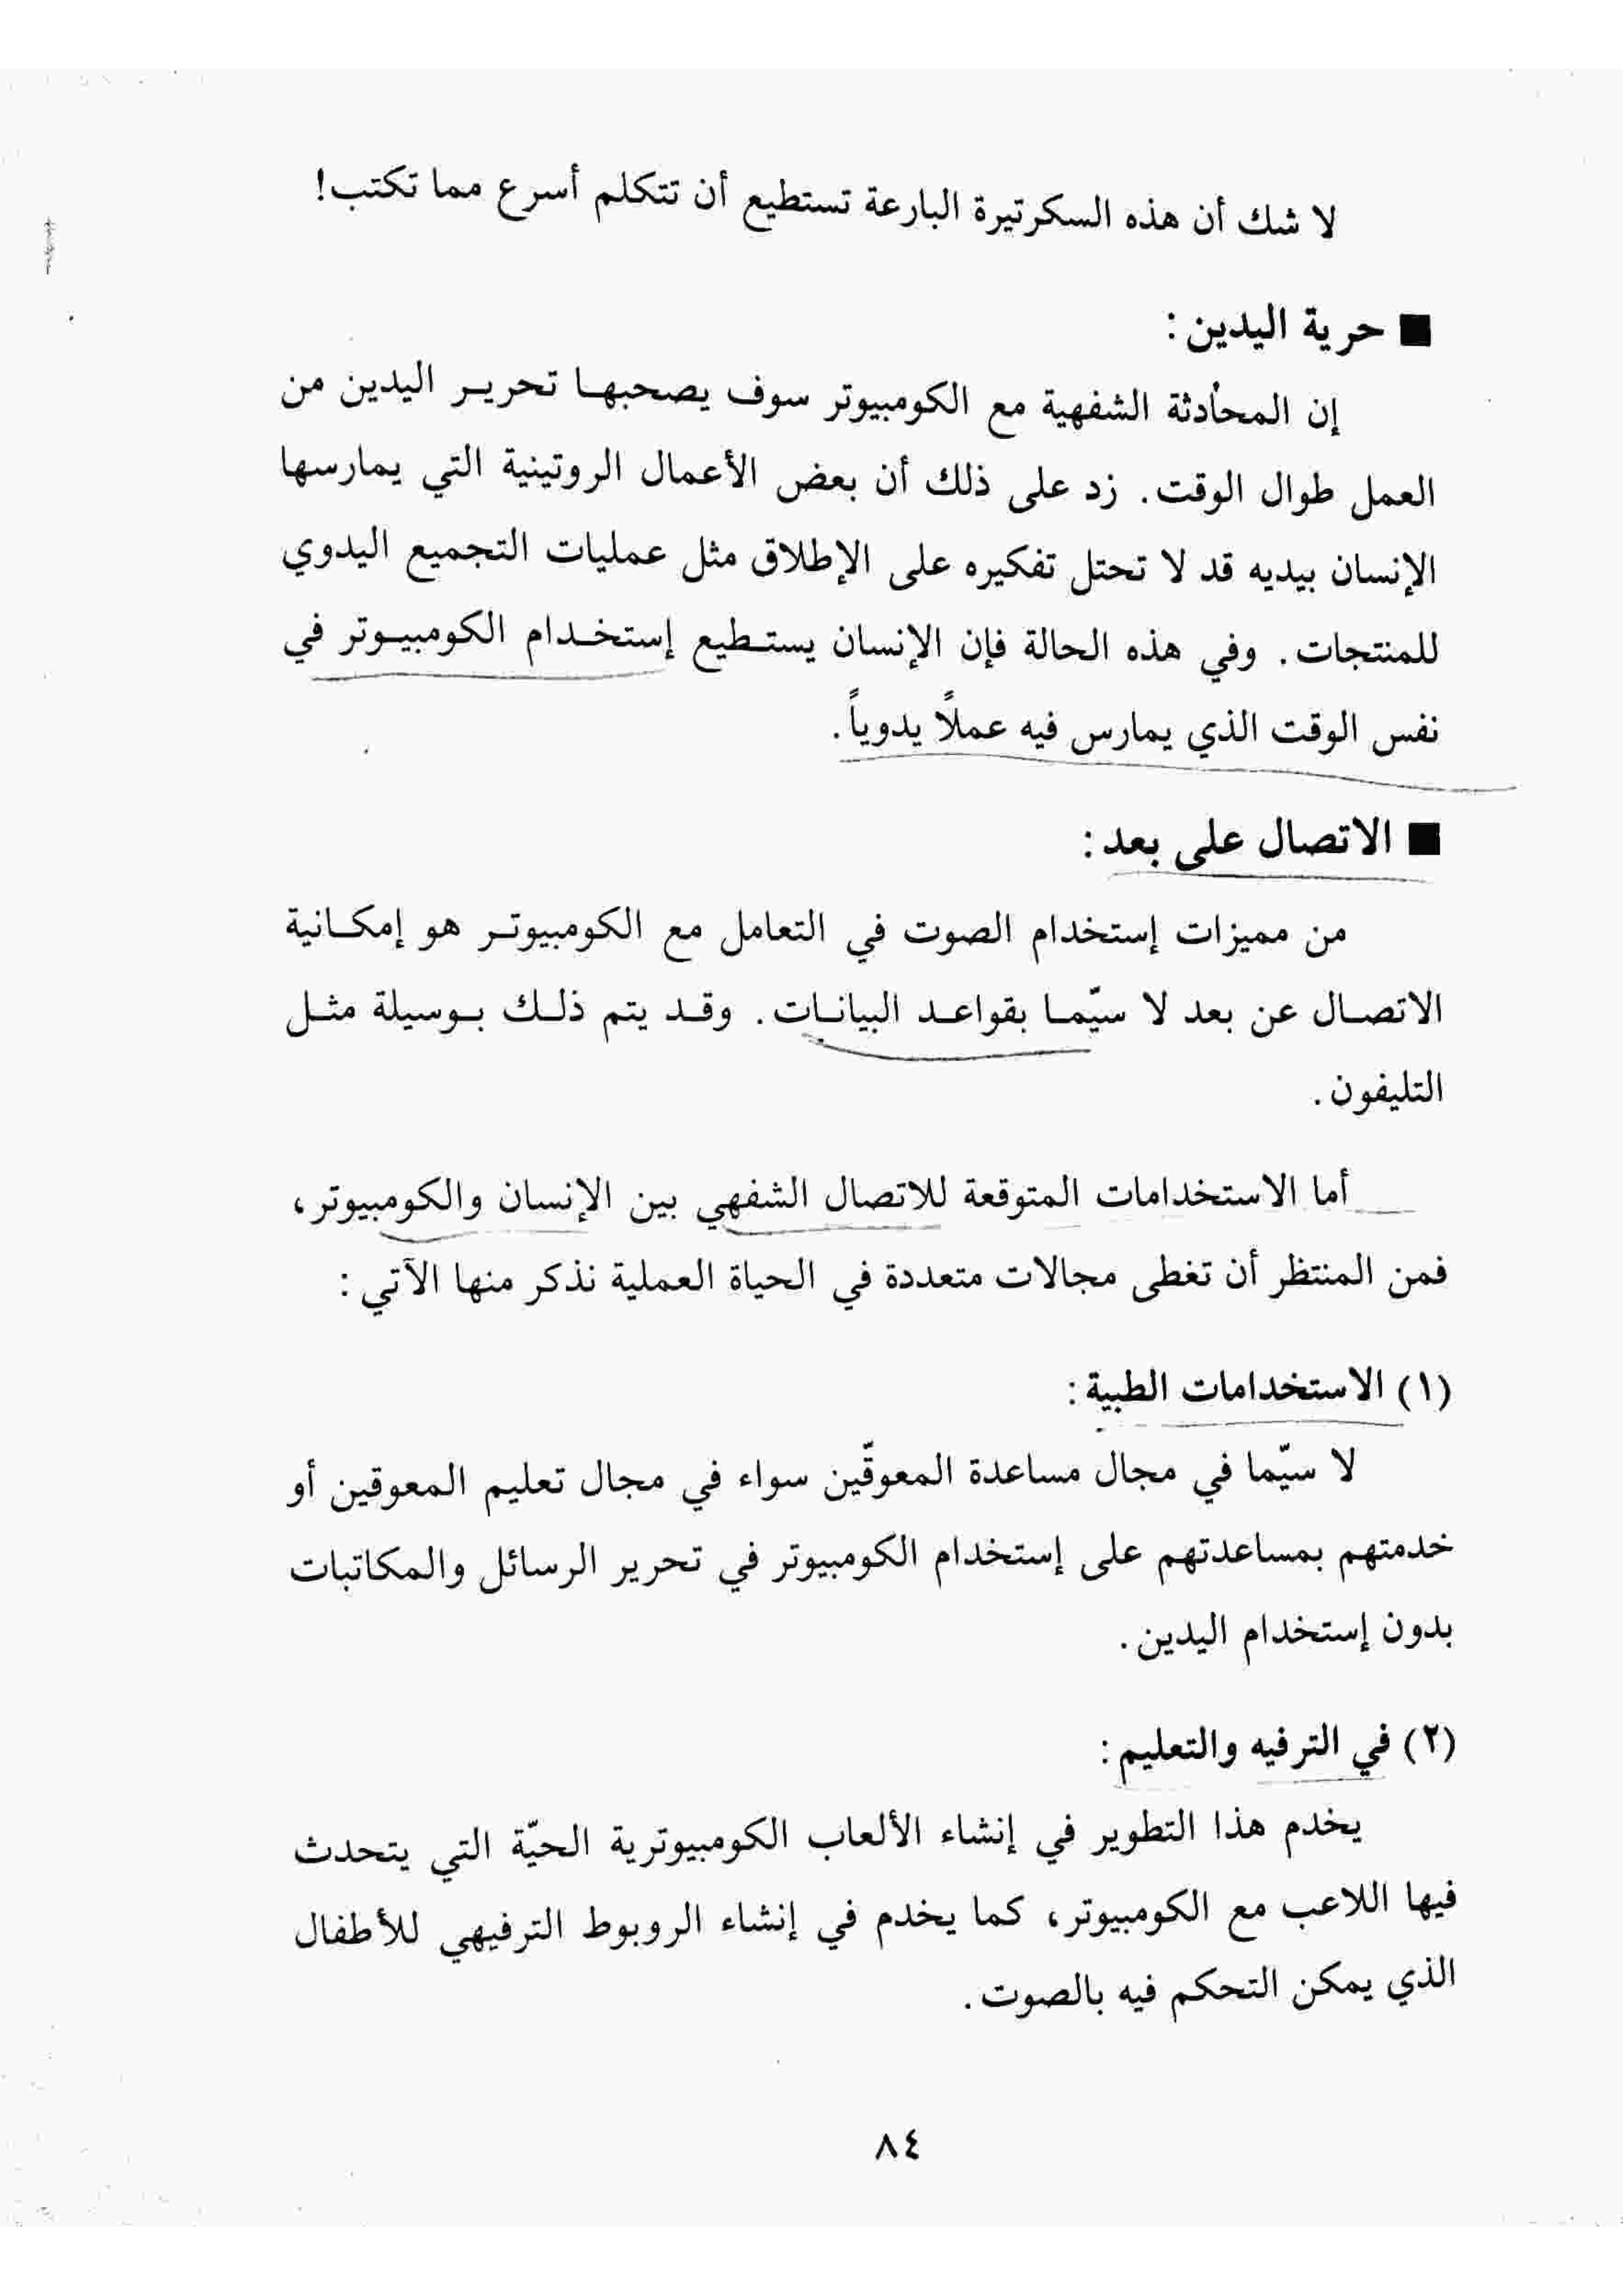 لا شك أن هذه السكرتيرة البارعة تستطيع أن تتكلم أسرع مما تكتب!
■ حرية اليدين :
إن المحادثة الشفهية مع الكومبيوتر سوف يصحبها تحرير اليدين من
العمل طوال الوقت. زد على ذلك أن بعض الأعمال الروتينية التي يمارسها
الإنسان بيديه قد لا تحتل تفكيره على الإطلاق مثل عمليات التجميع اليدوي
للمنتجات. وفي هذه الحالة فإن الإنسان يستطيع إستخدام الكومبيوتر في
نفس الوقت الذي يمارس فيه عملاً يدوياً.
■ الاتصال على بعد :
من مميزات إستخدام الصوت في التعامل مع الكومبيوتر هو إمكانية
الاتصال عن بعد لا سيّما بقواعد البيانات. وقد يتم ذلك بوسيلة مثل
التليفون.
أما الاستخدامات المتوقعة للاتصال الشفهي بين الإنسان والكومبيوتر،
فمن المنتظر أن تغطى مجالات متعددة في الحياة العملية نذكر منها الآتي :
(١) الاستخدامات الطبية :
لا سيّما في مجال مساعدة المعوقّين سواء في مجال تعليم المعوقين أو
خدمتهم بمساعدتهم على إستخدام الكومبيوتر في تحرير الرسائل والمكاتبات
بدون إستخدام اليدين.
(٢) في الترفيه والتعليم :
يخدم هذا التطوير في إنشاء الألعاب الكومبيوترية الحيّة التي يتحدث
فيها اللاعب مع الكومبيوتر، كما يخدم في إنشاء الروبوط الترفيهي للأطفال
الذي يمكن التحكم فيه بالصوت.
٨٤